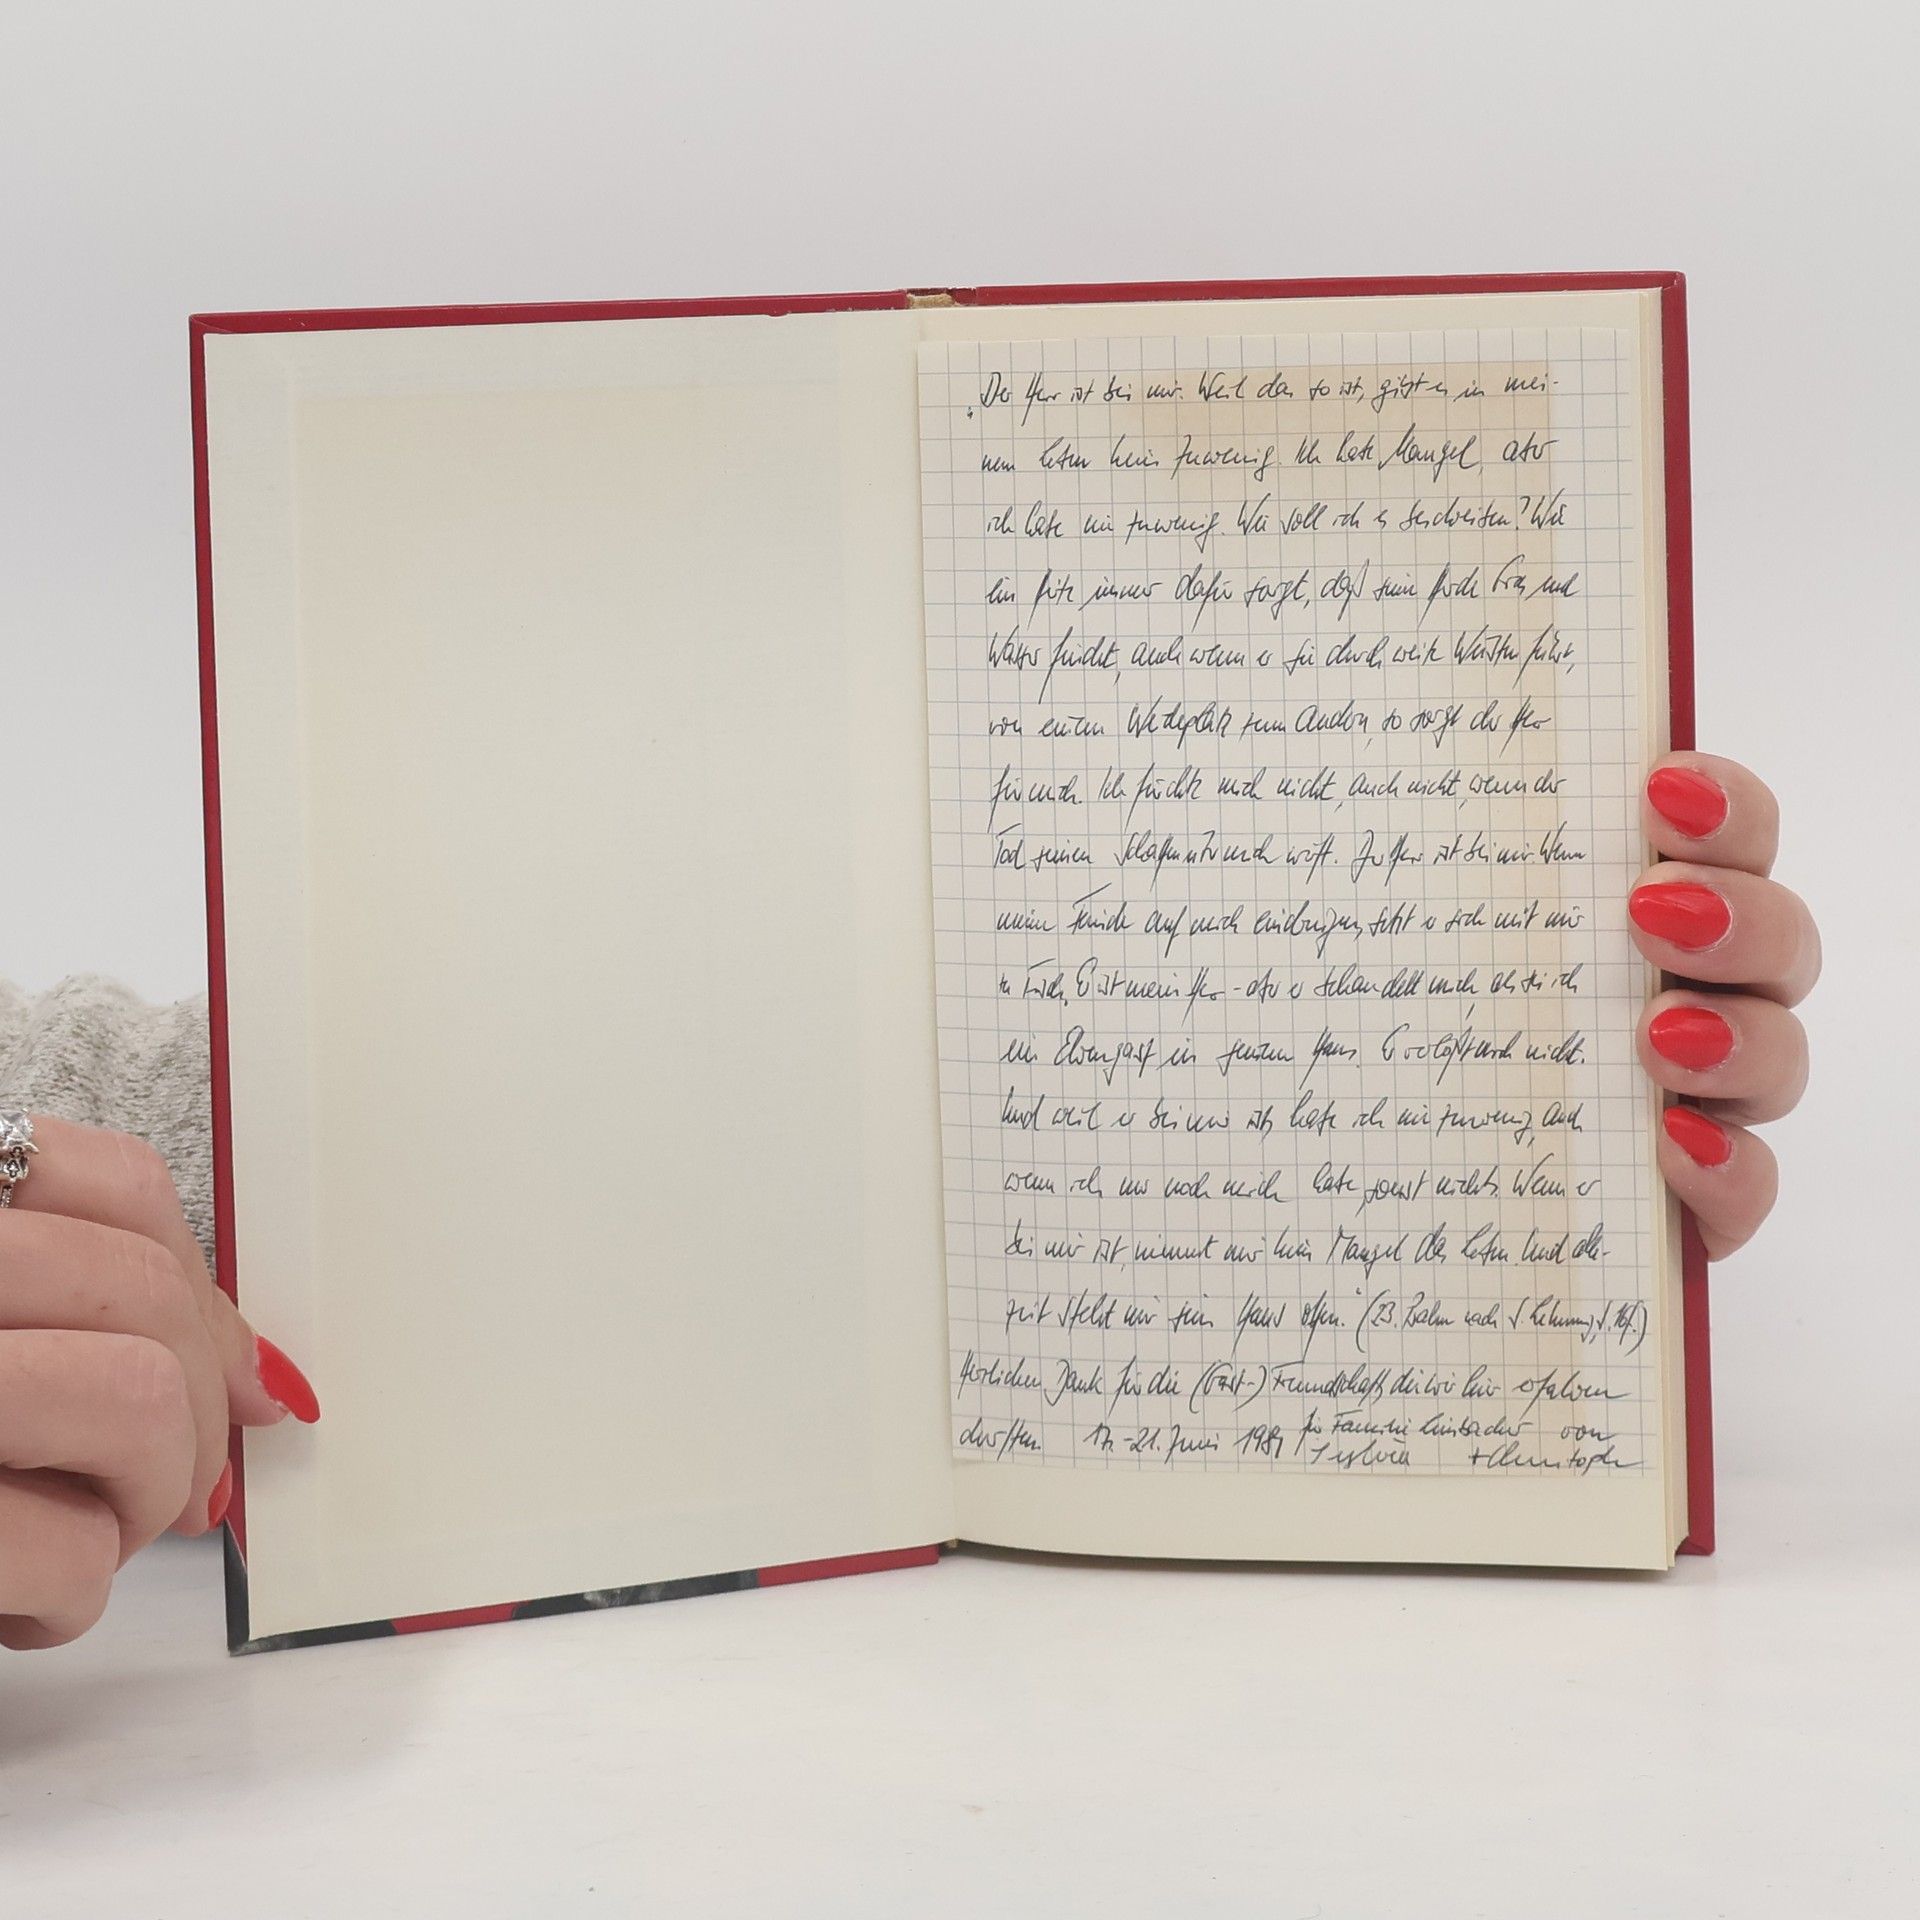 „Der Herr ist bei mir. Weil das so ist, gibt es in mei-
nem Leben kein Zuwenig. Ich habe Mangel, aber
ich habe nie zuwenig. Wie soll ich es beschreiben? Wie
ein Hirte immer dafür sorgt, daß seine Herde Gras und
Wasser findet, auch wenn er sie durch weite Wüsten führt,
von einem Weideplatz zum andern, so sorgt der Herr
für mich. Ich fürchte mich nicht, auch nicht, wenn der
Tod seinen Schatten über mich wirft. Der Herr ist bei mir. Wenn
meine Feinde auf mich eindringen, setzt er sich mit mir
zu Tisch. Er ist mein Herr - aber er behandelt mich, als sei ich
ein Ehrengast in seinem Haus. Er verläßt mich nicht.
Und weil er bei mir ist, habe ich nie zuwenig, auch
wenn ich nur noch mich habe, sonst nichts. Wenn er
bei mir ist, nimmt mir kein Mangel das Leben. Und alle-
zeit steht mir sein Haus offen." (23. Psalm nach J. S.)
Herzlichen Dank für die (Gast-) Freundschaft, die wir hier erfahren
durften. 17.-21. Juni 1989 für Familie von
Sylvia + Christoph